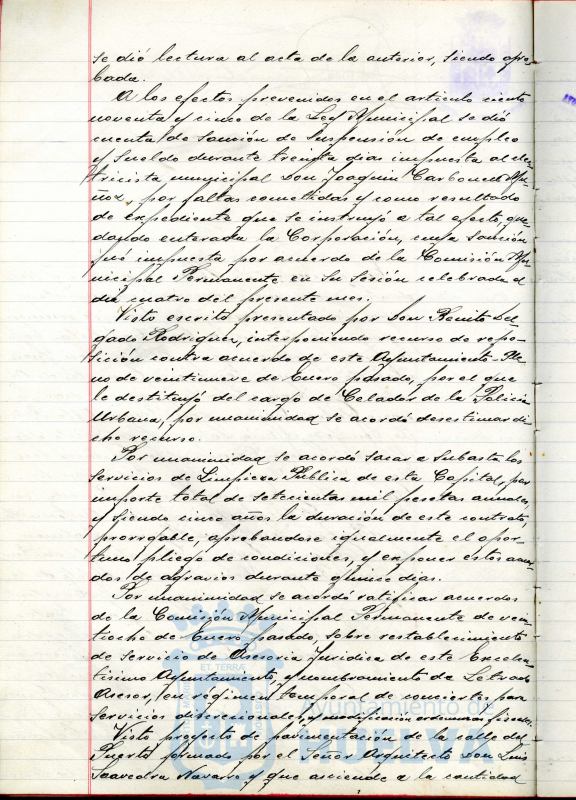 se dió lectura al acta de la anterior, siendo apro-
bada.
A los efectos prevenidos en el articulo ciento
noventa y cinco de la Ley Municipal se dió
cuenta de sanción de suspensión de empleo
y sueldo durante treinta dias impuesta al elec-
tricista municipal Don Joaquin Carbonell Mu-
ñoz, por faltas cometidas y como resultado
de expediente que se instruyó a tal efecto, que-
dando enterada la Corporación, cuya sanción
fué impuesta por acuerdo de la Comisión Mu-
nicipal Permanente en su sesión celebrada el
dia cuatro del presente mes.
Visto escrito presentado por Don Benito Del-
gado Rodriguez, interponiendo recurso de repo-
sición contra acuerdo de este Ayuntamiento-Ple-
no de veintinueve de Enero pasado, por el que
le destituyó del cargo de Celador de la Policia
Urbana, por unanimidad se acordó desestimar di-
cho recurso.
Por unanimidad se acordó sacar a subasta los
servicios de Limpieza Pública de esta Capital, por
importe total de setecientas mil pesetas anuales,
y siendo cinco años la duración de este contrato,
prorrogable, aprobandose igualmente el opor-
tuno pliego de condiciones, y exponer estos acuer-
dos de agravios durante quince dias.
Por unanimidad se acordó ratificar acuerdos
de la Comisión Municipal Permanente de vein-
tiocho de Enero pasado, sobre restablecimiento
de servicio de Asesoria Juridica de este Excelen-
tisimo Ayuntamiento, y nombramiento de Letrado
Asesor, en régimen temporal de conciertos para
servicios discrecionales, y modificación ordenanzas fiscales.
Visto proyecto de pavimentación de la calle del
Puerto formado por el Señor Arquitecto Don Luis
Saavedra Navarro y que asciende a la cantidad
ET TERRA
Ayuntamiento de
HUELVA